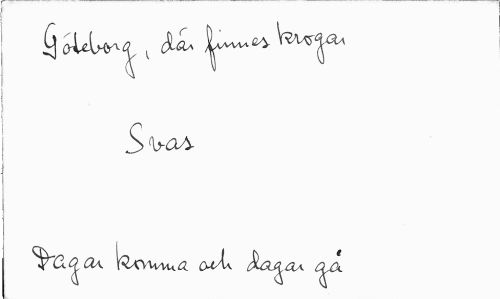 Göteborg, där finnes krogar
Svas
Dagar komma och dagar gå